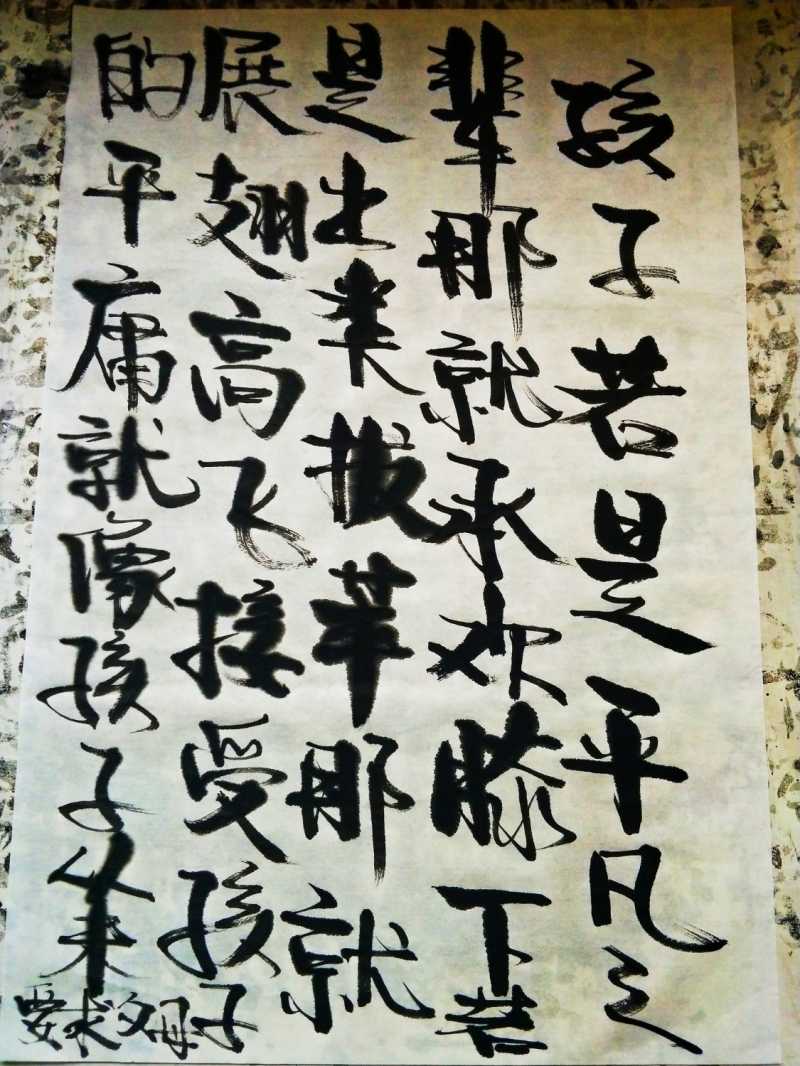 孩子若是平凡之
辈那就承欢膝下若
是出类拔萃那就
展翅高飞接受孩子
的平庸就像孩子从未
要求父母